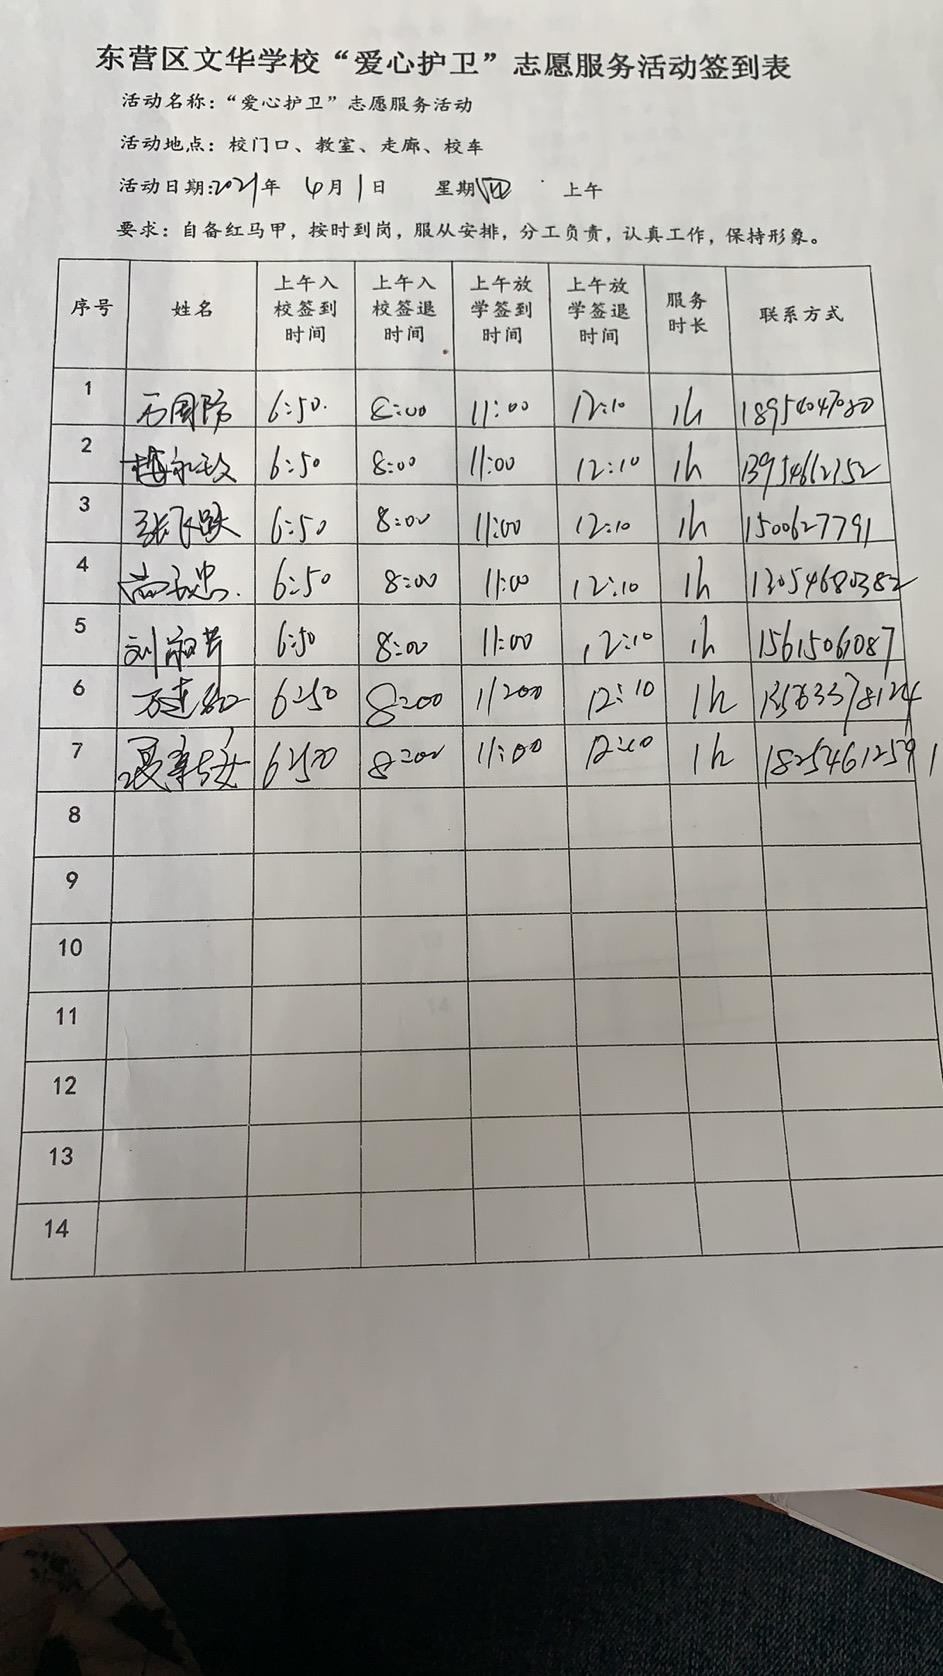 东营区文华学校“爱心护卫”志愿服务活动签到表
活动名称：“爱心护卫”志愿服务活动
活动地点：校门口、教室、走廊、校车
活动日期：2021年 4月1日 星期四 上午
要求：自备红马甲，按时到岗，服从安排，分工负责，认真工作，保持形象。
序号 姓名 上午入校签到时间 上午入校签退时间 上午放学签到时间 上午放学签退时间 服务时长 联系方式
1 石国防 6:50 8:00 11:00 12:10 1h 18954047080
2 6:50 8:00 11:00 12:10 1h 13954662752
3 张飞跃 6:50 8:00 11:00 12:10 1h 150627791
4 6:50 8:00 11:00 12:10 1h 13054680382
5 6:50 8:00 11:00 12:10 1h 15615061087
6 6:50 8:00 11:00 12:10 1h 13563378124
7 6:50 8:00 11:00 12:10 1h 18254612591
8
9
10
11
12
13
14